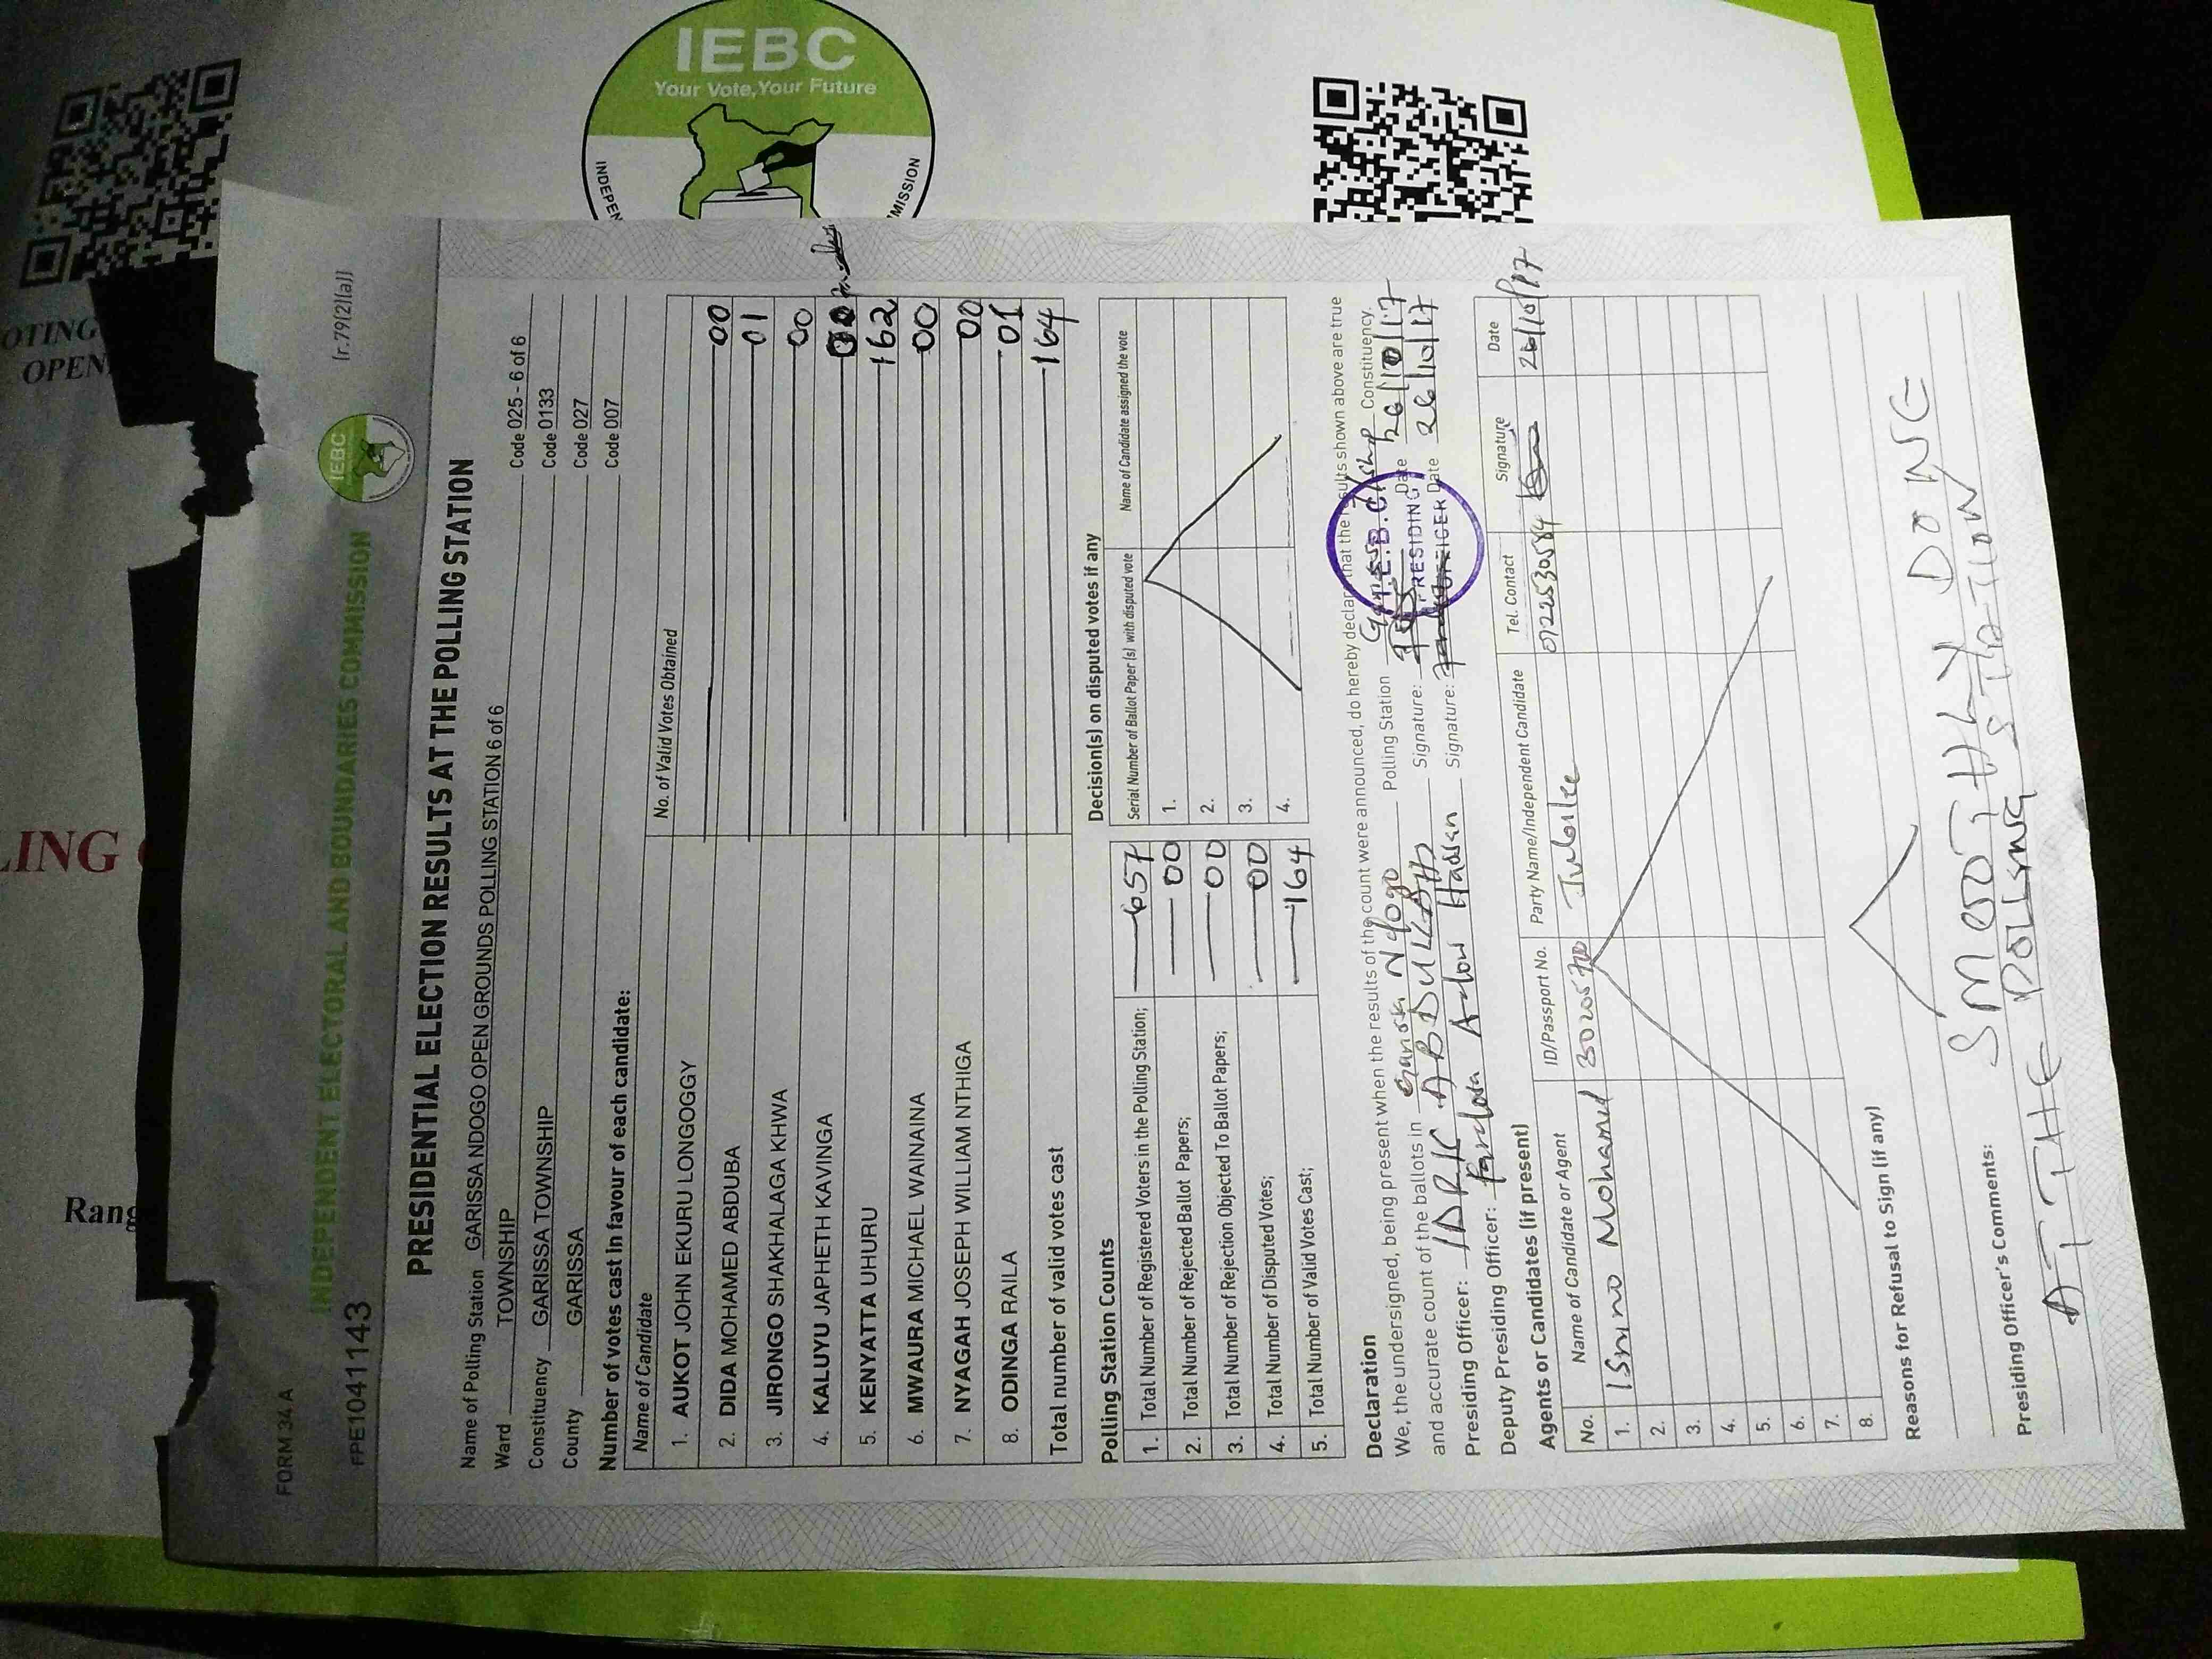 OTING
OPEN
LING
Rang
IEBC
Your Vote,Your Future
INDEPEN
MISSION
FORM 34 A
(r.79(2)(a))
FPE1041143
INDEPENDENT ELECTORAL AND BOUNDARIES COMMISSION
IEBC
PRESIDENTIAL ELECTION RESULTS AT THE POLLING STATION
Name of Polling Station GARISSA NDOGO OPEN GROUNDS POLLING STATION 6 of 6 Code 025 - 6 of 6
Ward TOWNSHIP Code 0133
Constituency GARISSA TOWNSHIP Code 027
County GARISSA Code 007
Number of votes cast in favour of each candidate:
Name of Candidate No. of Valid Votes Obtained
1. AUKOT JOHN EKURU LONGOGGY 00
2. DIDA MOHAMED ABDUBA 01
3. JIRONGO SHAKHALAGA KHWA 00
4. KALUYU JAPHETH KAVINGA
5. KENYATTA UHURU 162
6. MWAURA MICHAEL WAINAINA 00
7. NYAGAH JOSEPH WILLIAM NTHIGA 00
8. ODINGA RAILA 01
Total number of valid votes cast 164
Polling Station Counts
1. Total Number of Registered Voters in the Polling Station; 657
2. Total Number of Rejected Ballot Papers; 00
3. Total Number of Rejection Objected To Ballot Papers; 00
4. Total Number of Disputed Votes; 00
5. Total Number of Valid Votes Cast; 164
Decision(s) on disputed votes if any
Serial Number of Ballot Paper (s) with disputed vote Name of Candidate assigned the vote
1.
2.
3.
4.
Declaration
We, the undersigned, being present when the results of the count were announced, do hereby declare that the results shown above are true
and accurate count of the ballots in Garissa Ndogo Polling Station Garissa T/ship Constituency.
Presiding Officer: IDRIS ABDULLAHI Signature: Date 26/10/17
Deputy Presiding Officer: Farhosa Adow Hassan Signature: Date 26/10/17
I.E.B.C
PRESIDING
OFFICER
Agents or Candidates (if present)
No. Name of Candidate or Agent ID/Passport No. Party Name/Independent Candidate Tel. Contact Signature Date
1. Isnino Mohamud 30205700 Jubilee 0722530584 26/10/17
2.
3.
4.
5.
6.
7.
8.
Reasons for Refusal to Sign (if any)
Presiding Officer's Comments: SMOOTHLY DONE
AT THE POLLING STATION